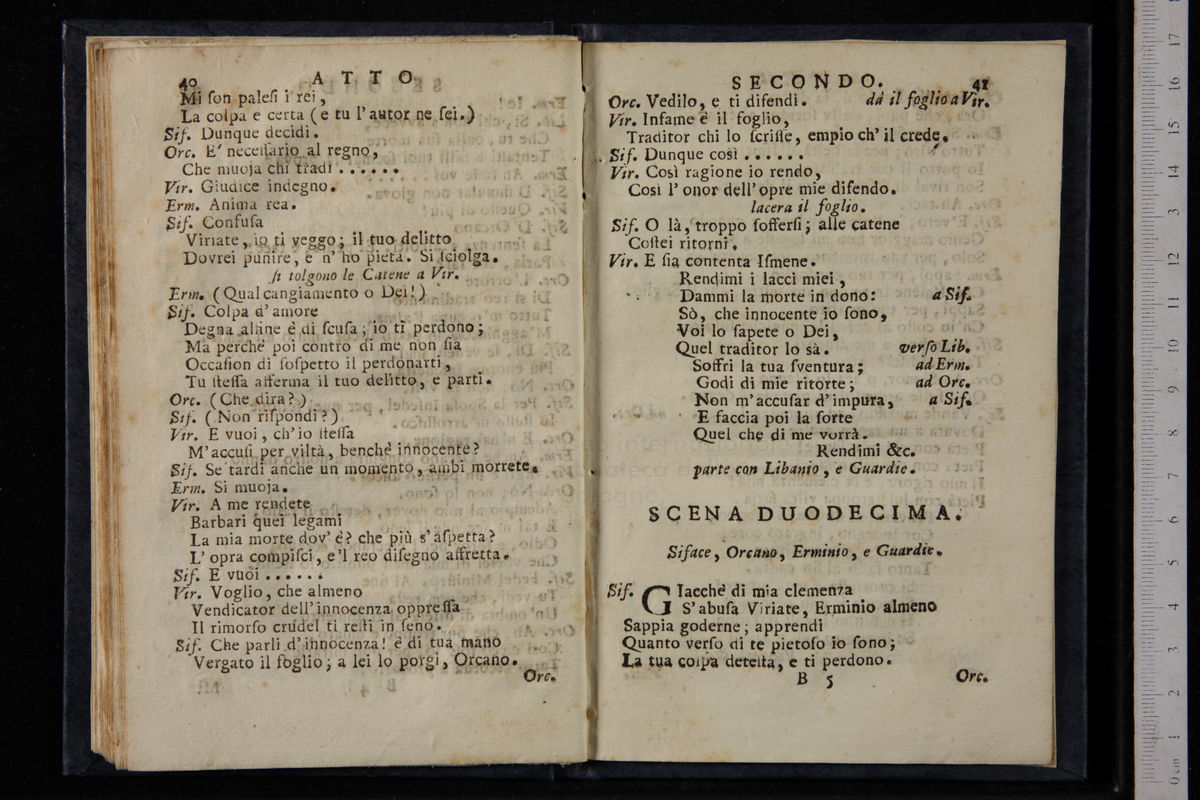 40 ATTO
Mi ſon paleſi i rei,
La colpa e certa (e tu l'autor ne ſei.)
Sif. Dunque decidi.
Orc. E' neceſſario al regno,
Che muoja chi tradì ......
Vir. Giudice indegno.
Erm. Anima rea.
Sif. Confuſa
Viriate, io ti veggo; il tuo delitto
Dovrei punire, e n' ho pietà. Si ſciolga.
ſi tolgono le Catene a Vir.
Erm. (Qual cangiamento o Dei!)
Sif. Colpa d'amore
Degna alfine è di ſcuſa; io ti perdono;
Ma perchè poi contro di me non ſia
Occaſion di ſoſpetto il perdonarti,
Tu ſteſſa afferma il tuo delitto, e parti.
Orc. (Che dirà?)
Sif. (Non riſpondi?)
Vir. E vuoi, ch'io ſteſſa
M'accuſi per viltà, benchè innocente?
Sif. Se tardi anche un momento, ambi morrete.
Erm. Si muoja.
Vir. A me rendete
Barbari quei legami
La mia morte dov' è? che più s'aſpetta?
L' opra compiſci, e'l reo diſegno affretta.
Sif. E vuoi ......
Vir. Voglio, che almeno
Vendicator dell'innocenza oppreſſa
Il rimorſo crudel ti reſti in ſeno.
Sif. Che parli d'innocenza! è di tua mano
Vergato il foglio; a lei lo porgi, Orcano.
Orc.
SECONDO. 41
Orc. Vedilo, e ti difendi. dà il foglio a Vir.
Vir. Infame è il foglio,
Traditor chi lo ſcriſſe, empio ch' il crede.
Sif. Dunque così ......
Vir. Così ragione io rendo,
Così l' onor dell'opre mie difendo.
lacera il foglio.
Sif. O là, troppo ſofferſi; alle catene
Coſtei ritorni.
Vir. E ſia contenta Iſmene.
Rendimi i lacci miei,
Dammi la morte in dono: a Sif.
Sò, che innocente io ſono,
Voi lo ſapete o Dei,
Quel traditor lo sà. verſo Lib.
Soffri la tua ſventura; ad Erm.
Godi di mie ritorte; ad Orc.
Non m'accuſar d'impura, a Sif.
E faccia poi la ſorte
Quel che di me vorrà.
Rendimi &c.
parte con Libanio, e Guardie.
SCENA DUODECIMA.
Siface, Orcano, Erminio, e Guardie.
Sif. GIacchè di mia clemenza
S'abuſa Viriate, Erminio almeno
Sappia goderne; apprendi
Quanto verſo di te pietoſo io ſono;
La tua colpa deteſta, e ti perdono.
B 5 Orc.